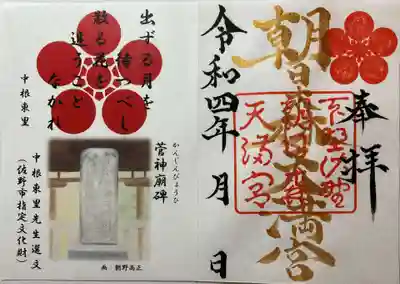 奉拝
朝日森天満宮
下野佐野
朝日森
天満宮
令和四年 月 日
出ずる月を
待つべし
散る花を
追うこと
なかれ
中根東里
かんじんびょうひ
菅神廟碑
中根東里先生選文
(佐野市指定文化財)